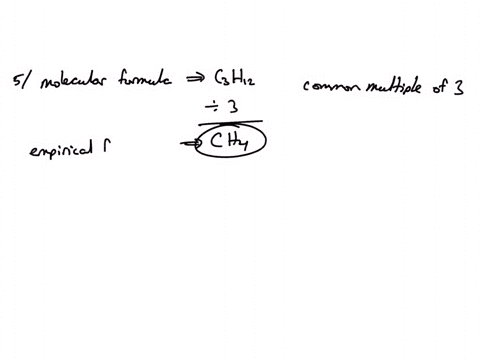 5/ molecular formula ⇒ C₃H₁₂
common multiple of 3
÷ 3
empirical f ⇒ CH₄